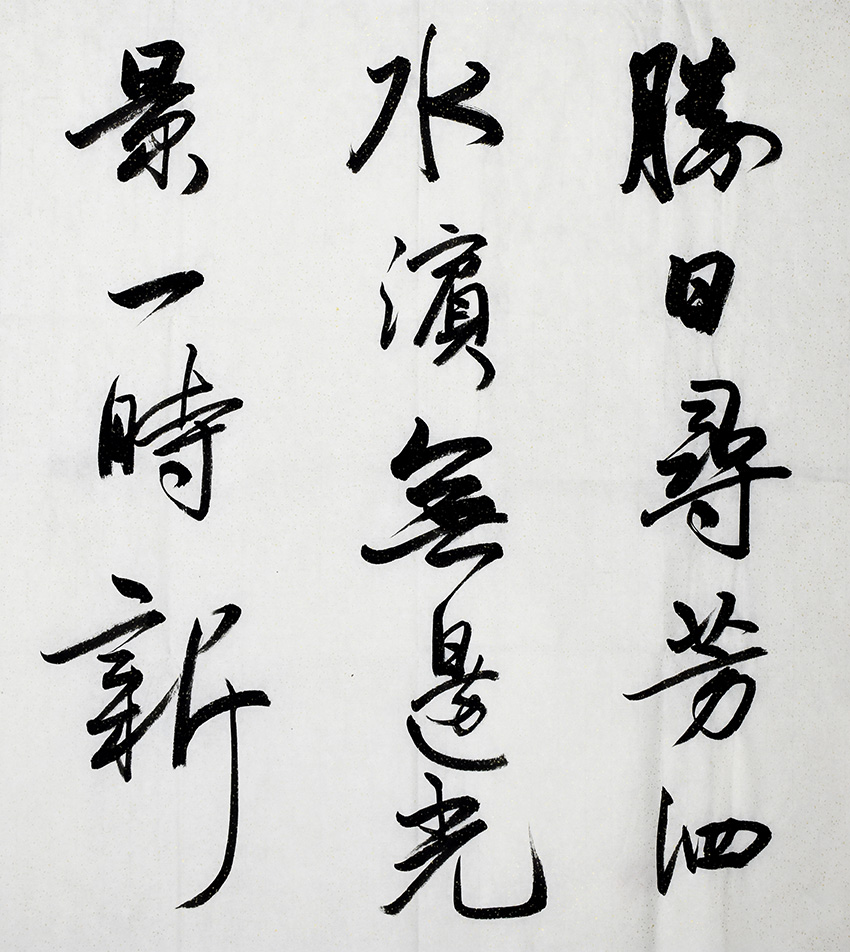 勝日尋芳泗
水濱無邊光
景一時新